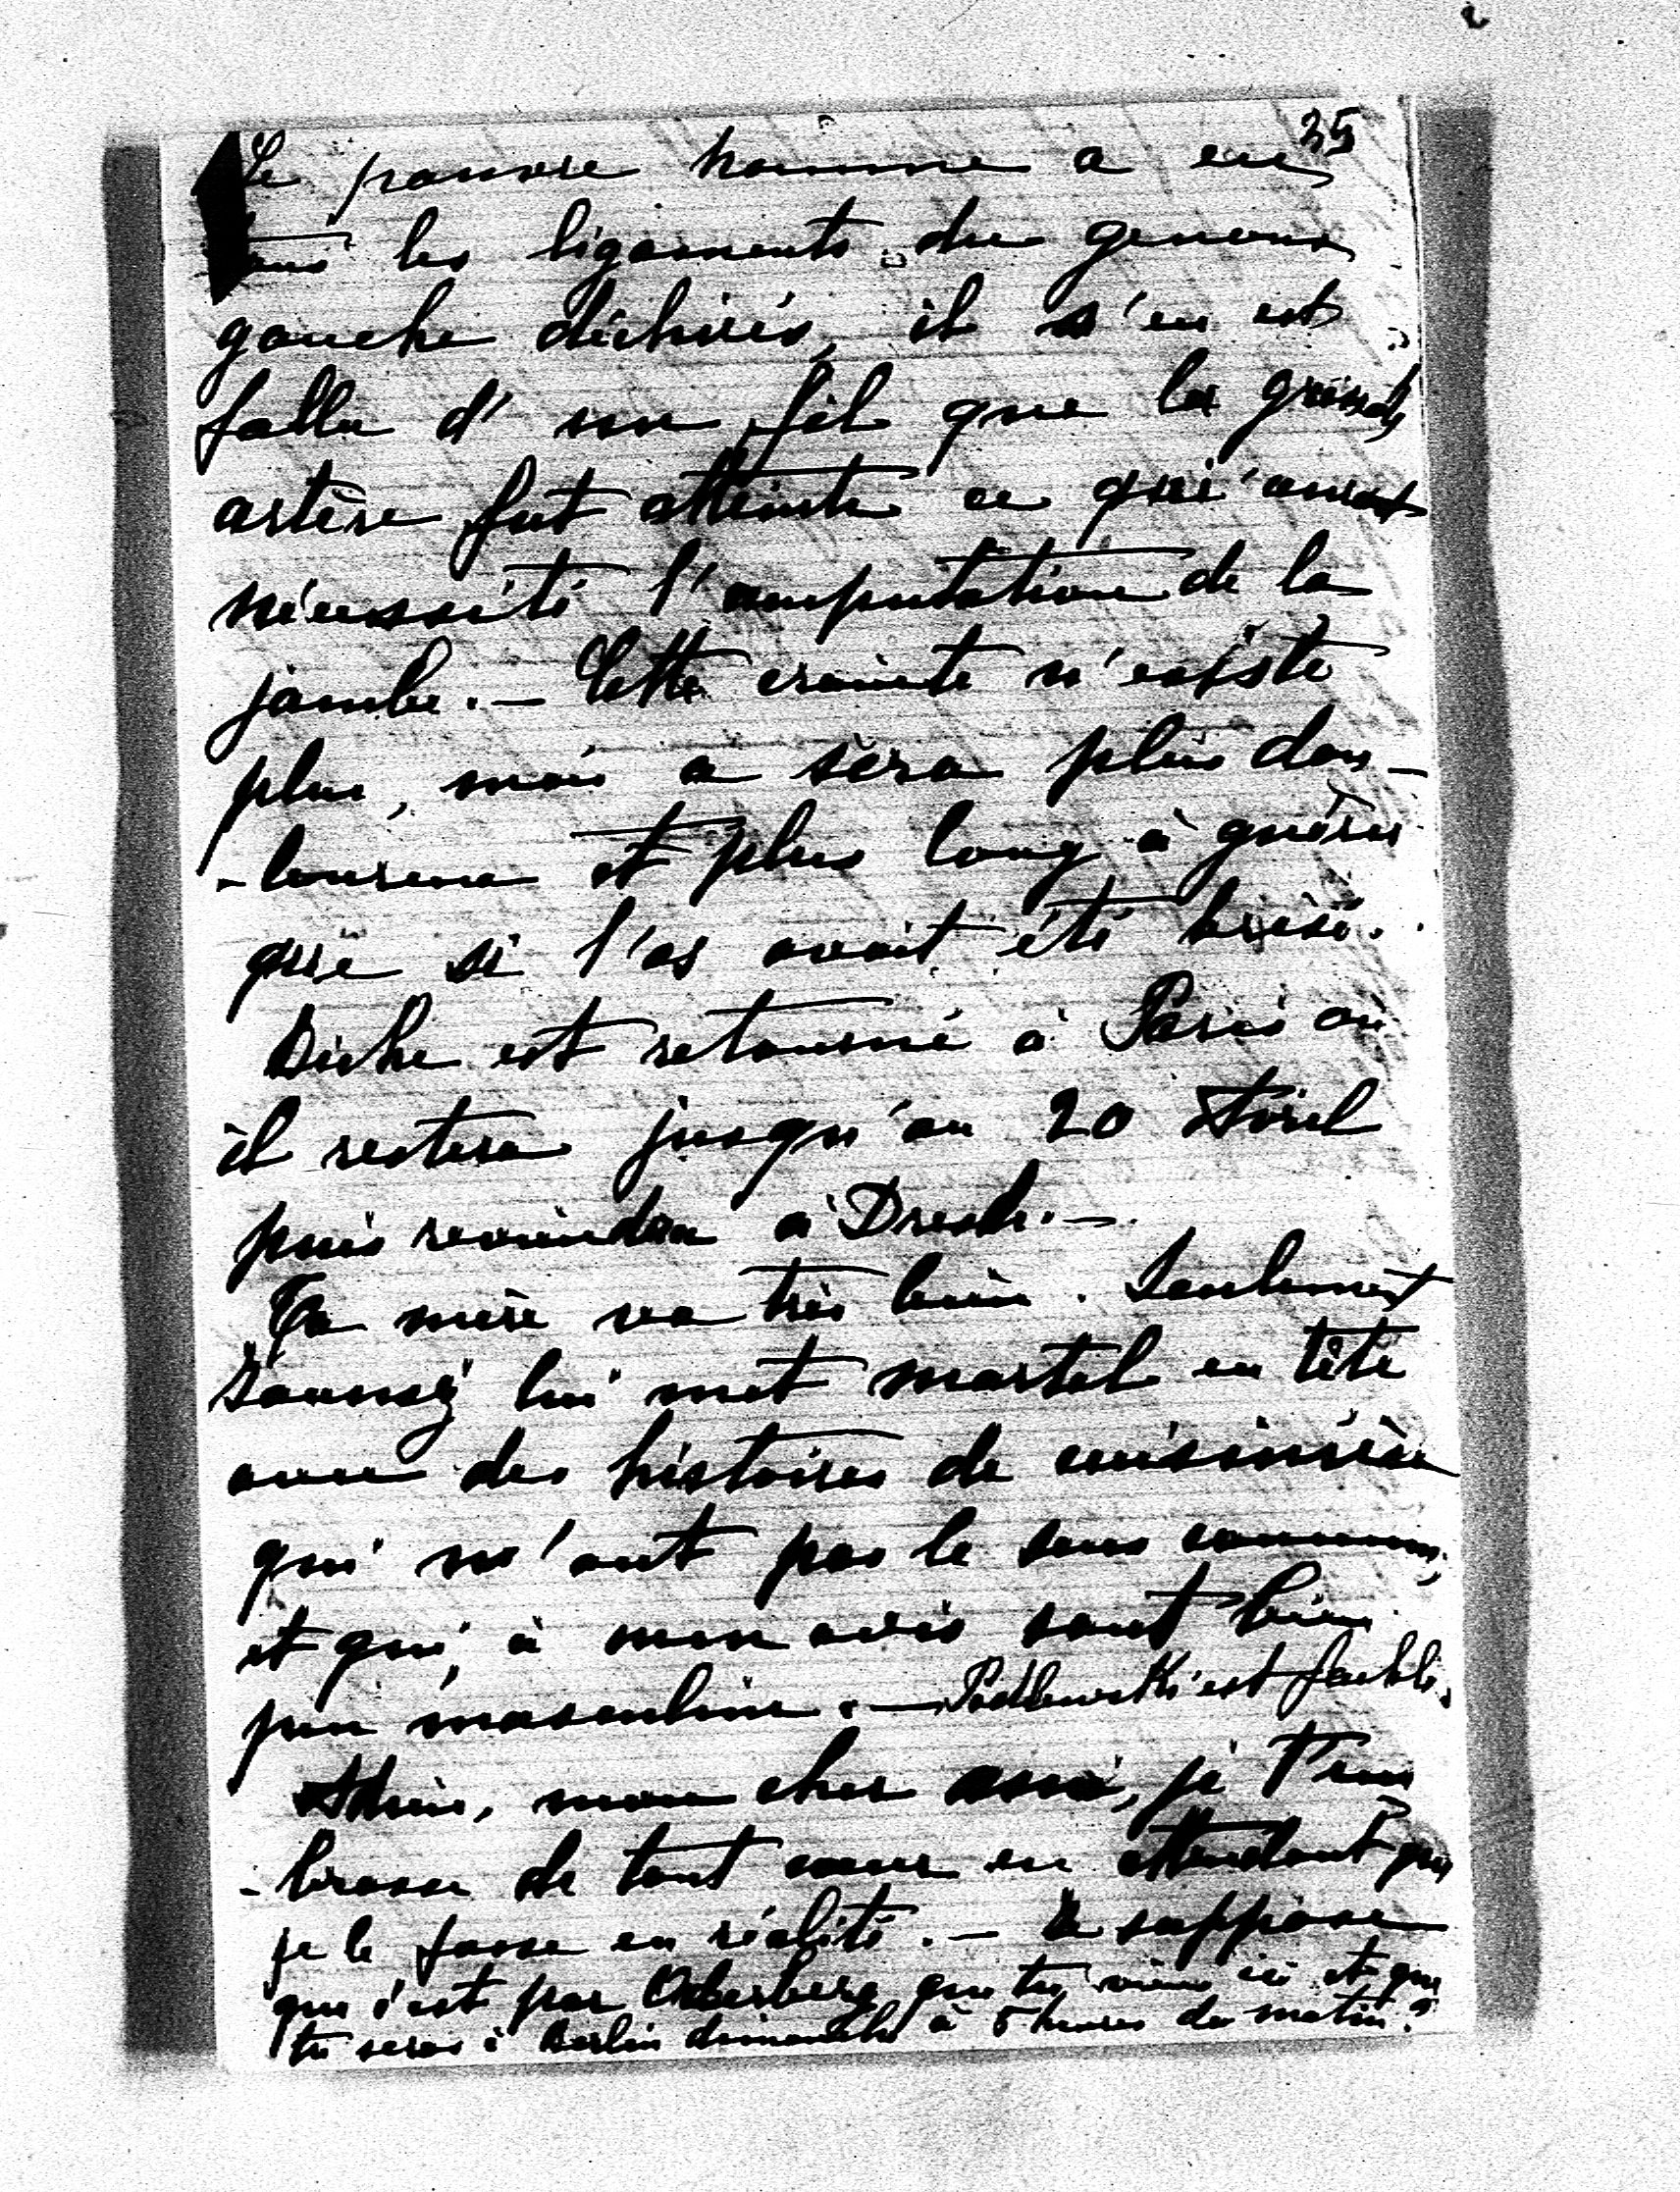 35
Le pauvre homme a eu
tous les ligaments du genoux
gauche déchirés, il s'en est
fallu d'un fil que la grande
artère fut atteinte ce qui aurait
nécessité l'amputation de la
jambe. — Cette crainte n'existe
plus, mais ce sera plus dou-
-loureux et plus long à guérir
que si l'os avait été brisé.
est retourné à Paris où
il restera jusqu'au 20 Avril
puis reviendra à Dresde. —
Ta mère va très bien. Seulement
lui met martel en tête
avec des histoires de cuisinière
qui n'ont pas le sens commun,
et qui, à mon avis sont bien
peu masculines. — Podlewski est faible.
Adieu, mon cher ami, je t'em
-brasse de tout cœur en attendant que
je le fasse en réalité. — Je suppose
que c'est par Oderberg que tu viens ici et que
tu seras à Berlin dimanche à 5 heures du matin?